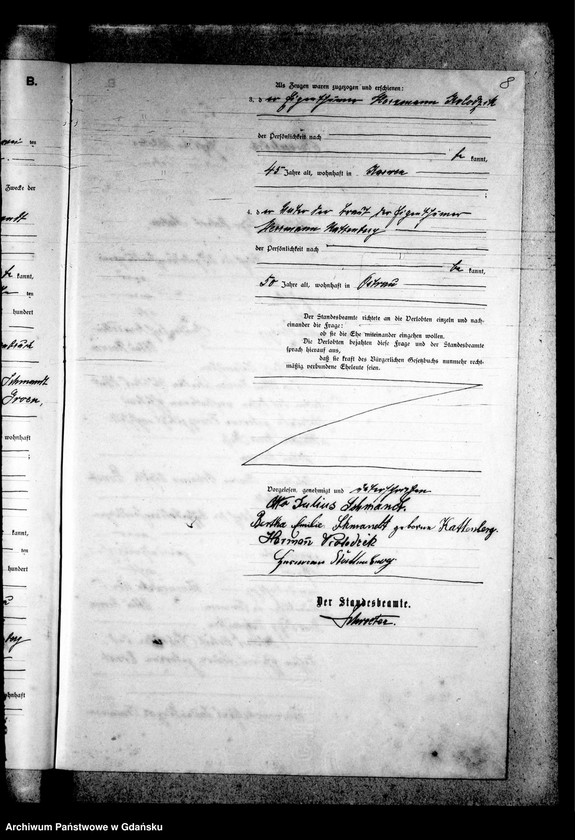 B.
8
Als Zeugen waren zugezogen und erschienen:
3. der Eigenthümer Herrmann Kolodzik
der Persönlichkeit nach
be kannt,
45 Jahre alt, wohnhaft in Karwen
;
4. der Vater der Braut, der Eigenthümer
Herrmann Kattenberg
der Persönlichkeit nach
be kannt,
50 Jahre alt, wohnhaft in Ostrau
Der Standesbeamte richtete an die Verlobten einzeln und nach-
einander die Frage:
ob sie die Ehe miteinander eingehen wollen.
Die Verlobten bejahten diese Frage und der Standesbeamte
sprach hierauf aus,
daß sie kraft des Bürgerlichen Gesetzbuchs nunmehr recht-
mäßig verbundene Eheleute seien.
Vorgelesen, genehmigt und unterschrieben
Otto Julius Schmandt.
Bertha Emilie Schmandt geborene Kattenberg.
Herman
Herrmann Kattenberg
Der Standesbeamte.
Zwecke der
kannt,
hundert
Schmandt
wohnhaft
kannt,
hundert
wohnhaft
Archiwum Państwowe w Gdańsku